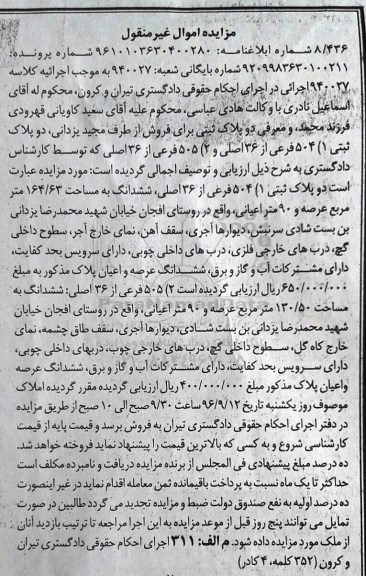 مزایده اموال غیرمنقول
۸/۴۳۶ شماره ابلاغنامه: ۹۶۱۰۱۰۳۶۳۰۴۰۰۲۸۰ شماره پرونده:
۹۲۰۹۹۸۳۶۳۰۱۰۰۲۱۱ شماره بایگانی شعبه: ۹۴۰۰۲۷ به موجب اجرائیه کلاسه
۹۴۰۰۲۷ اجرائی در اجرای احکام حقوقی دادگستری تیران و کرون، محکوم له آقای
اسماعیل نادری با وکالت هادی عباسی، محکوم علیه آقای سعید کاویانی قهرودی
فرزند محمد، و معرفی دو پلاک ثبتی برای فروش از طرف مجید یزدانی، دو پلاک
ثبتی ۱) ۵۰۴ فرعی از ۳۶ اصلی و ۲) ۵۰۵ فرعی از ۳۶ اصلی که توسط کارشناس
دادگستری به شرح ذیل ارزیابی و توصیف اجمالی گردیده است: مورد مزایده عبارت
است دو پلاک ثبتی ۱) ۵۰۴ فرعی از ۳۶ اصلی، ششدانگ به مساحت ۱۶۴/۶۳ متر
مربع عرصه و ۹۰ متر اعیانی، واقع در روستای افجان خیابان شهید محمدرضا یزدانی
بن بست شادی سرنبش، دیوارها آجری، سقف آهن، نمای خارج آجر، سطوح داخلی
گچ، درب های خارجی فلزی، درب های داخلی چوبی، دارای سرویس بحد کفایت،
دارای مشترکات آب و گاز و برق، ششدانگ عرصه و اعیان پلاک مذکور به مبلغ
۶۵۰/۰۰۰/۰۰۰ ریال ارزیابی گردیده است ۲) ۵۰۵ فرعی از ۳۶ اصلی: ششدانگ به
مساحت ۱۳۰/۵۰ متر مربع عرصه و ۹۰ متر اعیانی، واقع در روستای افجان خیابان
شهید محمدرضا یزدانی بن بست شادی، دیوارها آجری، سقف طاق چشمه، نمای
خارج کاه گل، سطوح داخلی گچ، درب های خارجی چوب، دربهای داخلی چوبی،
دارای سرویس بحد کفایت، دارای مشترکات آب و گاز و برق، ششدانگ عرصه
واعیان پلاک مذکور مبلغ ۴۰۰/۰۰۰/۰۰۰ ریال ارزیابی گردیده مقرر گردیده املاک
موصوف روز یکشنبه تاریخ ۹۶/۹/۱۲ ساعت ۹/۳۰ صبح الی ۱۰ صبح از طریق مزایده
در دفتر اجرای احکام حقوقی دادگستری تیران به فروش برسد و قیمت پایه از قیمت
کارشناسی شروع و به کسی که بالاترین قیمت را پیشنهاد نماید فروخته خواهد شد.
ده درصد مبلغ پیشنهادی فی المجلس از برنده مزایده دریافت و نامبرده مکلف است
حداکثر تا یک ماه نسبت به پرداخت باقیمانده ثمن معامله اقدام نماید در غیر اینصورت
ده درصد اولیه به نفع صندوق دولت ضبط و مزایده تجدید می گردد طالبین در صورت
تمایل می توانند پنج روز قبل از موعد مزایده به این اجرا مراجعه تا ترتیب بازدید آنان
از ملک مورد مزایده داده شود. م الف: ۳۱۱ اجرای احکام حقوقی دادگستری تیران
و کرون (۳۵۲ کلمه، ۴ کادر)